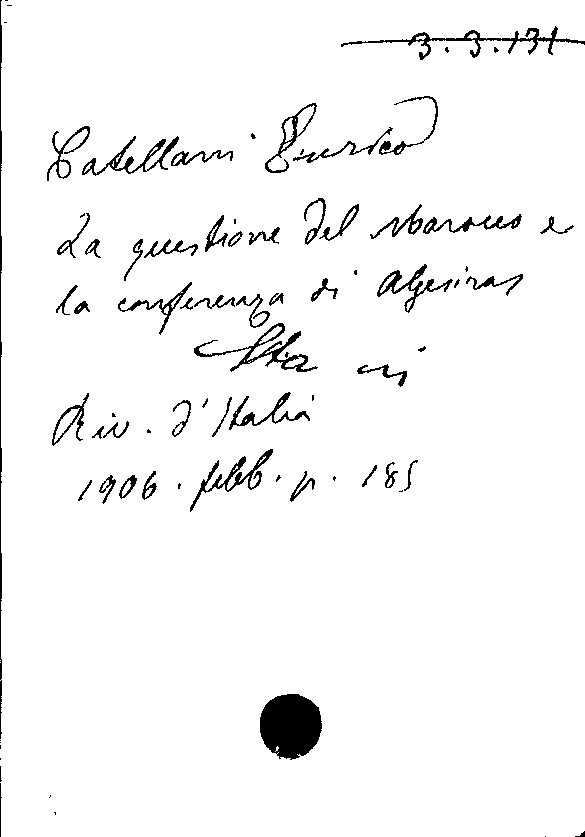 3.3.131
Catellani Enrico
La questione del Marocco e
la conferenza di Algesiras
Sta in
Riv. d'Italia
1906. febb. p. 185